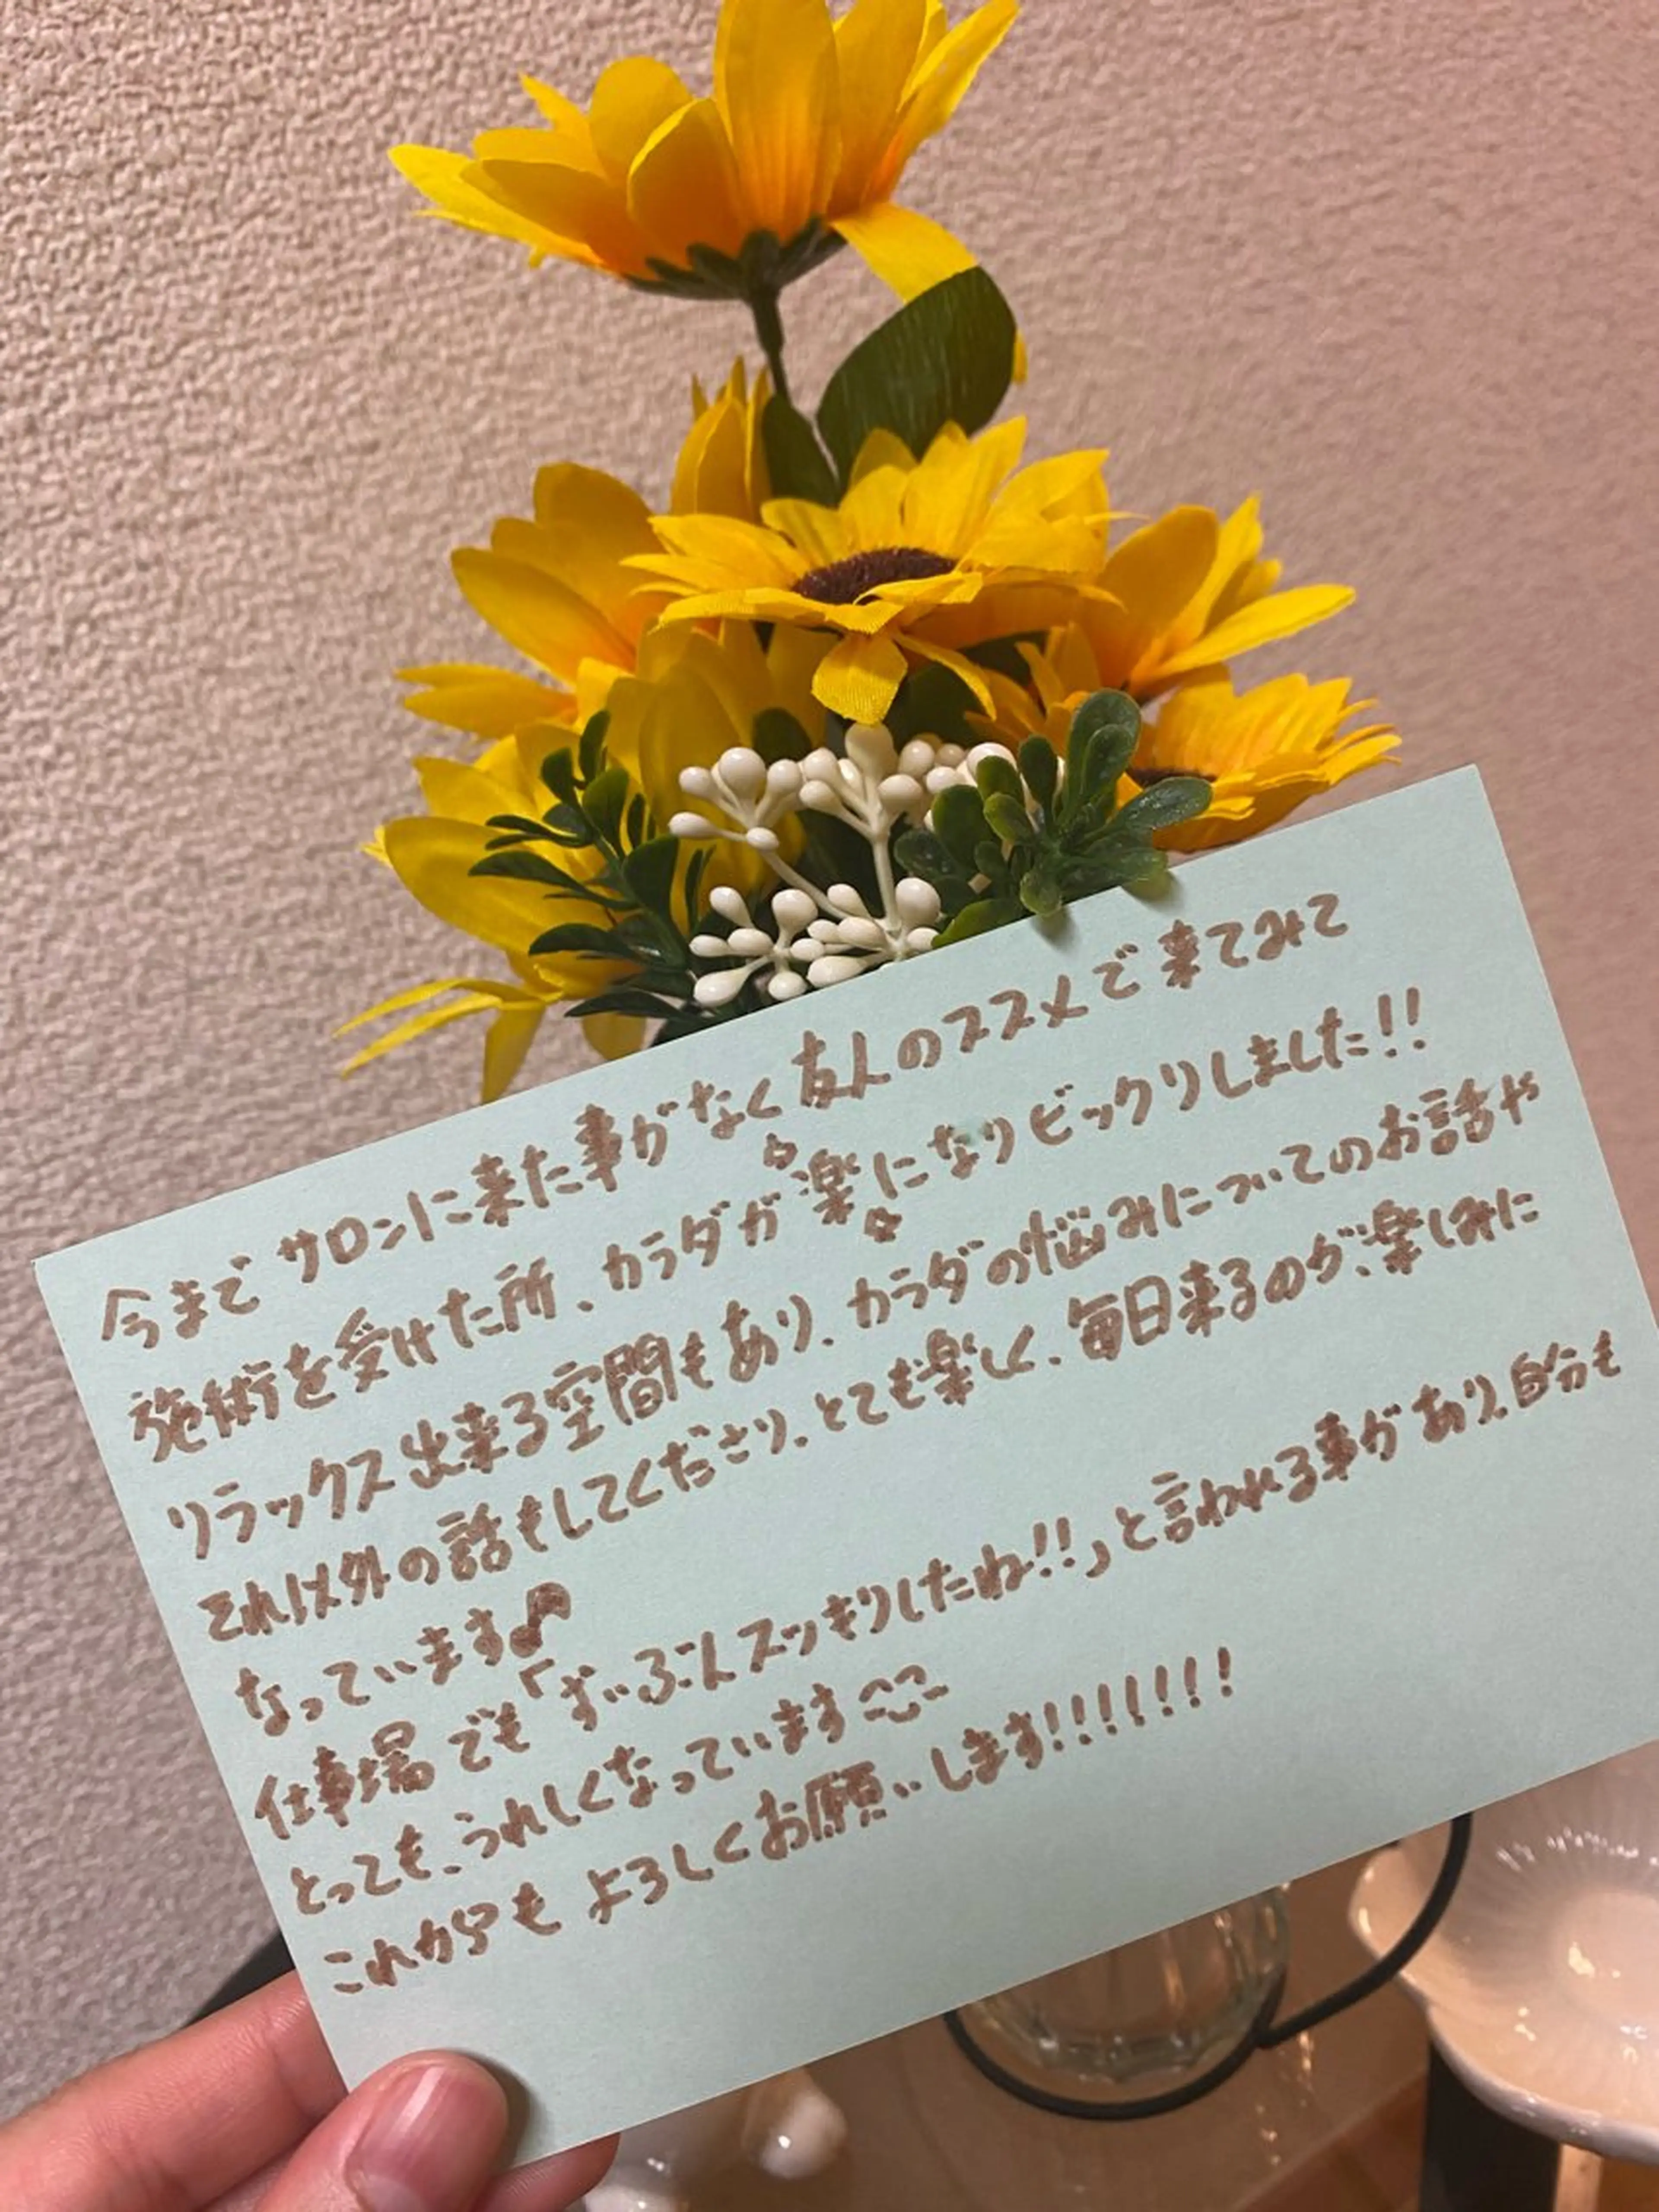 今までサロンに来た事がなく友人のススメで来てみて
施術を受けた所、カラダが楽になりビックリしました!!
リラックス出来る空間もあり、カラダの悩みについてのお話や
それ以外の話もしてくださり、とても楽しく、毎日来るのが、楽しみに
なっています♪
仕事場でも「ずいぶんスッキリしたね!!」と言われる事があり、自分も
とっても、うれしくなっています
これからもよろしくお願いします!!!!!!!